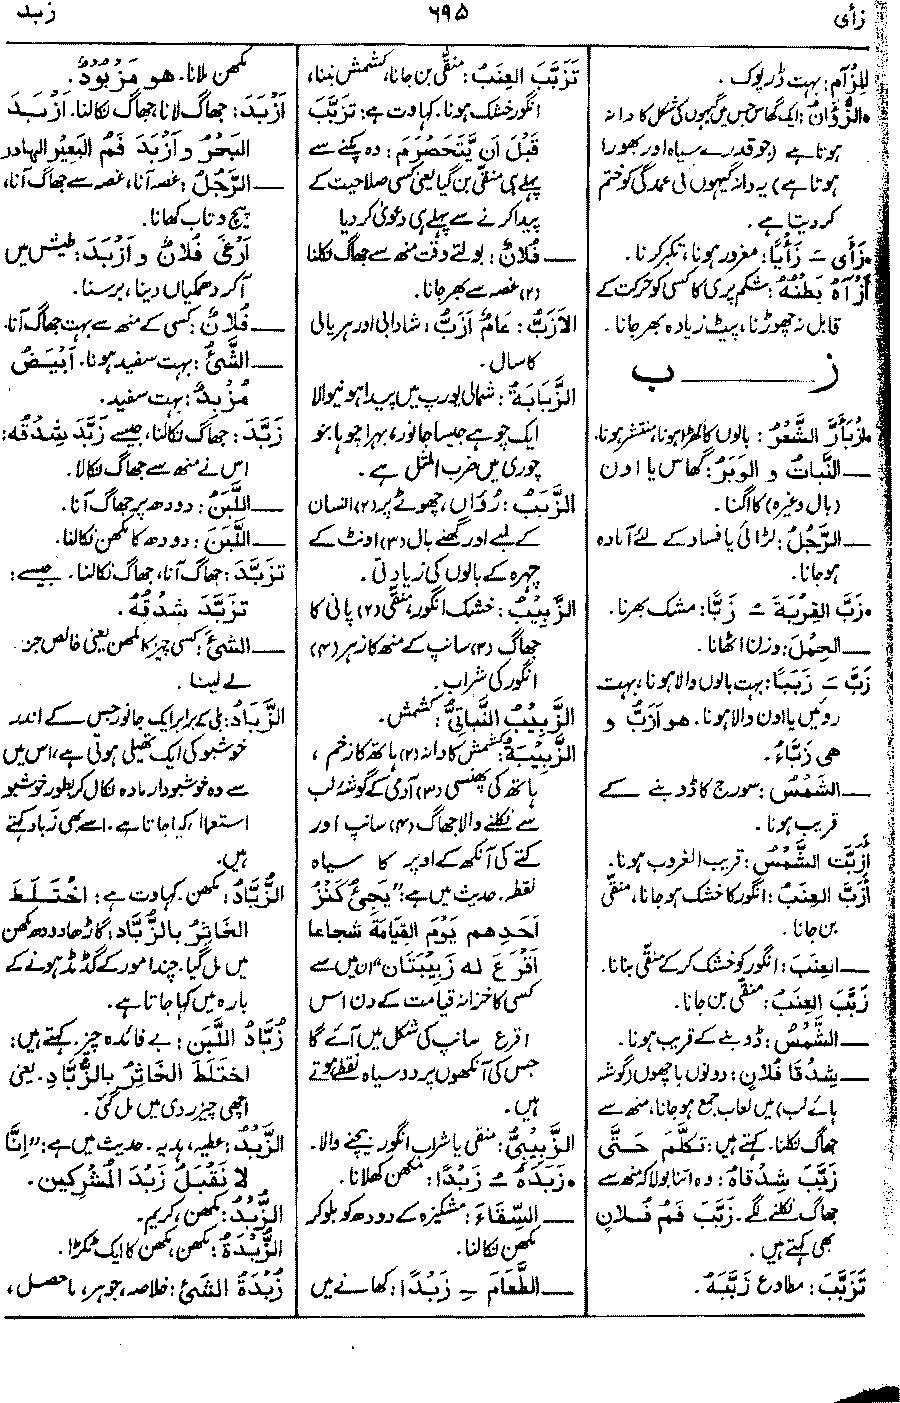 زأی
۶۹۵
زبد
للزُّآم: بہت ڈرپوک۔
•الزُّؤَانُ: ایک گھاس جس میں گیہوں کی شکل کا دانہ
ہوتا ہے (جو قدرے سیاہ اور بھورا
ہوتا ہے) یہ دانہ گیہوں کی عمدگی کو ختم
کر دیتا ہے۔
•زَأَى ــَ زَأْيًا: مغرور ہونا، تکبر کرنا۔
أَزْآهُ بَطْنُهُ: شکم پری کا کسی کو حرکت کے
قابل نہ چھوڑنا، پیٹ زیادہ بھر جانا۔
ز ــــــ ب
•ازْبَأَرَّ الشَّعْرُ: بالوں کا کھڑا ہونا، منتشر ہونا،
ــ النَّبَاتُ و الوَبَرُ: گھاس یا اون
(بال وغیرہ) کا اگنا۔
ــ الرَّجُلُ: لڑائی یا فساد کے لئے آمادہ
ہو جانا۔
•زَبَّ القِرْبَةَ ــُ زَبًّا: مشک بھرنا۔
ــ الحِمْلَ: وزن اٹھانا۔
زَبَّ ــَ زَبَبًا: بہت بالوں والا ہونا، بہت
رویں یا اون والا ہونا۔ هو أَزَبُّ و
هی زَبَّاءُ۔
ــ الشَّمْسُ: سورج کا ڈوبنے کے
قریب ہونا۔
أَزَبَّتِ الشَّمْسُ: قریب الغروب ہونا۔
أَزَبَّ العِنَبُ: انگور کا خشک ہو جانا، منقّٰی
بن جانا۔
ــ العِنَبَ: انگور کو خشک کر کے منقّٰی بنانا۔
زَبَّبَ العِنَبُ: منقّٰی بن جانا۔
ــ الشَّمْسُ: ڈوبنے کے قریب ہونا۔
ــ شِدْقَا فُلَانٍ: دونوں باچھوں (گوشہ
ہائے لب) میں لعاب جمع ہو جانا، منھ سے
جھاگ نکلنا۔ کہتے ہیں: تَكَلَّمَ حَتَّى
زَبَّبَ شِدْقَاهُ: وہ اتنا بولا کہ منھ سے
جھاگ نکلنے لگے۔ زَبَّبَ فَمُ فُلَانٍ
بھی کہتے ہیں۔
تَزَبَّبَ: مطاوع زَبَّبَهُ۔
تَزَبَّبَ العِنَبُ: منقّٰی بن جانا، کشمش بننا،
انگور خشک ہونا۔ کہاوت ہے: تَزَبَّبَ
قَبْلَ أَن يَّتَحَصْرَمَ: وہ پکنے سے
پہلے ہی منقّٰی بن گیا یعنی کسی صلاحیت کے
پیدا کرنے سے پہلے ہی دعوٰی کر دیا
ــ فُلَانٌ: بولتے وقت منھ سے جھاگ نکلنا
(۲) غصہ سے بھر جانا۔
الأَزَبُّ: عَامٌ أَزَبُّ: شادابی اور ہریالی
کا سال۔
الزَّبَابَةُ: شمالی یورپ میں پیدا ہونیوالا
ایک چوہے جیسا جانور، بہرا چوہا جو
چوری میں ضرب المثل ہے۔
الزَّبَبُ: رُوَاں، چھوٹے پر (۲) انسان
کے لمبے اور گھنے بال (۳) اونٹ کے
چہرہ کے بالوں کی زیادتی۔
الزَّبِيْبُ: خشک انگور، منقّٰی (۲) پانی کا
جھاگ (۳) سانپ کے منھ کا زہر (۴)
انگور کی شراب۔
الزَّبِيْبُ النَّبَاتِیُّ: کشمش۔
الزَّبِيْبَةُ: کشمش کا دانہ (۲) ہاتھ کا زخم،
ہاتھ کی پھنسی (۳) آدمی کے گوشۂ لب
سے نکلنے والا جھاگ (۴) سانپ اور
کتے کی آنکھ کے اوپر کا سیاہ
نقطہ۔ حدیث میں ہے: ”يَجِیءُ كَنْزُ
أَحَدِهِم يَوْمَ القِيَامَةِ شُجَاعًا
أَقْرَعَ لَه زَبِيْبَتَان“ ان میں سے
کسی کا خزانہ قیامت کے دن اس
اقرع سانپ کی شکل میں آئے گا
جس کی آنکھوں پر دو سیاہ نقطے ہوتے
ہیں۔
الزَّبِيْبِیُّ: منقی یا شراب انگور بیچنے والا۔
•زَبَدَهُ ــُ زَبْدًا: مکھن کھلانا۔
ــ السِّقَاءَ: مشکیزہ کے دودھ کو بلو کر
مکھن نکالنا۔
ــ الطَّعَامَ ــِ زَبْدًا: کھانے میں
مکھن ملانا۔ هو مَزْبُودٌ۔
أَزْبَدَ: جھاگ لانا، جھاگ نکالنا۔ أَزْبَدَ
البَحْرُ و أَزْبَدَ فَمُ البَعِيْرِ الهَادِرِ
ــ الرَّجُلُ: غصہ آنا، غصہ سے جھاگ آنا،
پیچ و تاب کھانا۔
أَرْغَى فُلَانٌ و أَزْبَدَ: طیش میں
آ کر دھمکیاں دینا، برسنا۔
ــ فُلَانٌ: کسی کے منھ سے بہت جھاگ آنا۔
ــ الشَّیْءُ: بہت سفید ہونا۔ أَبْيَضُ
مُزْبِدٌ: بہت سفید۔
زَبَّدَ: جھاگ نکالنا، جیسے زَبَّدَ شِدْقُهُ:
اس نے منھ سے جھاگ نکالا۔
ــ اللَّبَنُ: دودھ پر جھاگ آنا۔
ــ اللَّبَنَ: دودھ کا مکھن نکالنا۔
تَزَبَّدَ: جھاگ آنا، جھاگ نکالنا۔ جیسے:
تَزَبَّدَ شِدْقُهُ۔
ــ الشَّیْءَ: کسی چیز کا مکھن یعنی خالص جز۔
لے لینا۔
الزَّبَادُ: بلی کے برابر ایک جانور جس کے اندر
خوشبو کی ایک تھیلی ہوتی ہے، اس میں
سے وہ خوشبودار مادہ نکال کر بطور خوشبو
استعمال کیا جاتا ہے۔ اسے بھی زباد کہتے
ہیں۔
الزُّبَّادُ: مکھن۔ کہاوت ہے: اخْتَلَطَ
الخَاثِرُ بالزُّبَّادِ: گاڑھا دودھ مکھن
میں مل گیا۔ چند امور کے گڈمڈ ہونے کے
بارہ میں کہا جاتا ہے۔
زُبَّادُ اللَّبَنِ: بے فائدہ چیز۔ کہتے ہیں:
اخْتَلَطَ الخَاثِرُ بالزُّبَّادِ۔ یعنی
اچھی چیز ردی میں مل گئی۔
الزَّبْدُ: عطیہ، ہدیہ۔ حدیث میں ہے: ”إنَّا
لا نَقْبَلُ زَبْدَ المُشْرِكِين۔
الزُّبْدُ: مکھن، کریم۔
الزُّبْدَةُ: مکھن، مکھن کا ایک ٹکڑا۔
زُبْدَةُ الشَّیْءِ: خلاصہ، جوہر، ماحصل،